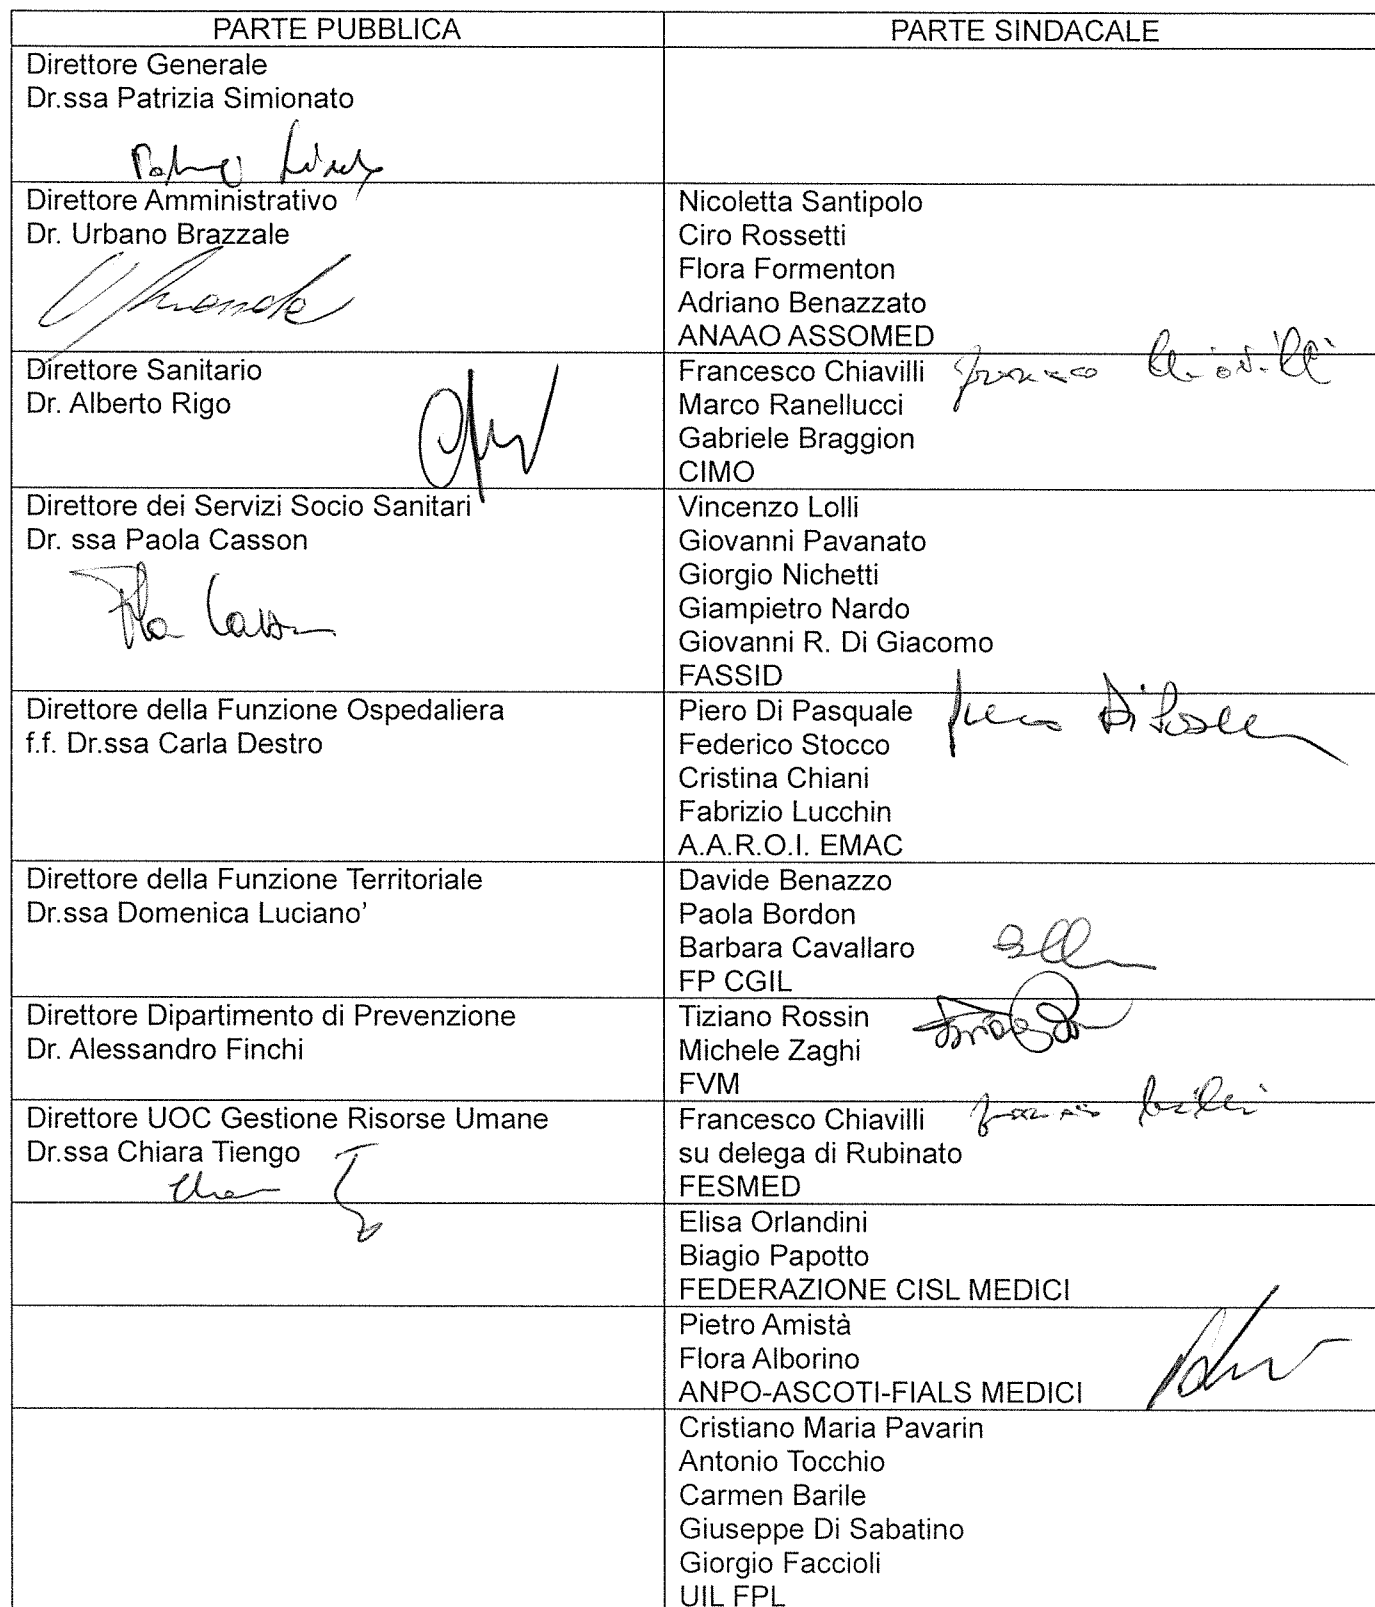 PARTE PUBBLICA
PARTE SINDACALE
Direttore Generale
Dr.ssa Patrizia Simionato
Direttore Amministrativo
Dr. Urbano Brazzale
Nicoletta Santipolo
Ciro Rossetti
Flora Formenton
Adriano Benazzato
ANAAO ASSOMED
Direttore Sanitario
Dr. Alberto Rigo
Francesco Chiavilli
Marco Ranellucci
Gabriele Braggion
CIMO
Direttore dei Servizi Socio Sanitari
Dr. ssa Paola Casson
Vincenzo Lolli
Giovanni Pavanato
Giorgio Nichetti
Giampietro Nardo
Giovanni R. Di Giacomo
FASSID
Direttore della Funzione Ospedaliera
f.f. Dr.ssa Carla Destro
Piero Di Pasquale
Federico Stocco
Cristina Chiani
Fabrizio Lucchin
A.A.R.O.I. EMAC
Direttore della Funzione Territoriale
Dr.ssa Domenica Luciano’
Davide Benazzo
Paola Bordon
Barbara Cavallaro
FP CGIL
Direttore Dipartimento di Prevenzione
Dr. Alessandro Finchi
Tiziano Rossin
Michele Zaghi
FVM
Direttore UOC Gestione Risorse Umane
Dr.ssa Chiara Tiengo
Francesco Chiavilli
su delega di Rubinato
FESMED
Elisa Orlandini
Biagio Papotto
FEDERAZIONE CISL MEDICI
Pietro Amistà
Flora Alborino
ANPO-ASCOTI-FIALS MEDICI
Cristiano Maria Pavarin
Antonio Tocchio
Carmen Barile
Giuseppe Di Sabatino
Giorgio Faccioli
UIL FPL